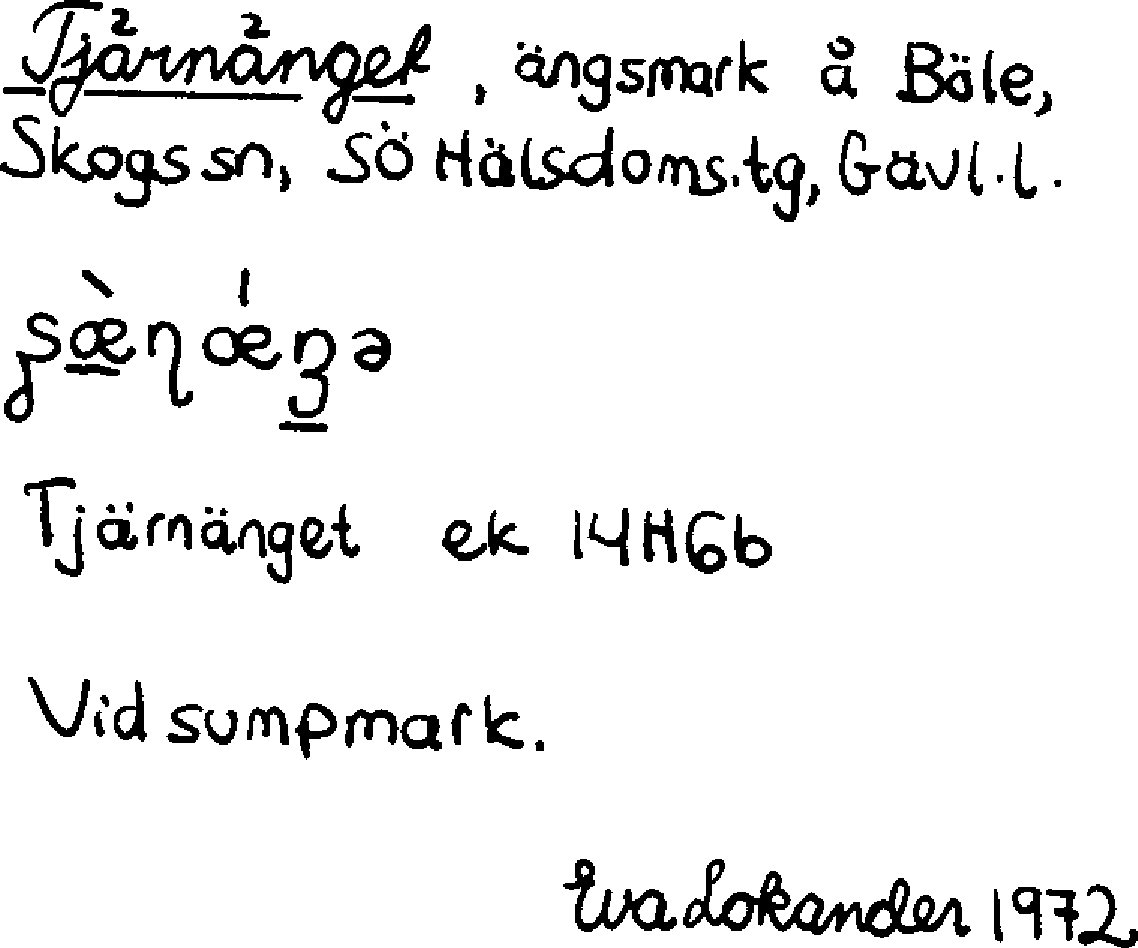 Tjärnänget, ängsmark å Böle,
Skogs sn, Sö Hälsdoms.tg, Gävl.l.
Tjärnänget ek 14H6b
Vid sumpmark.
Eva Lokander 1972